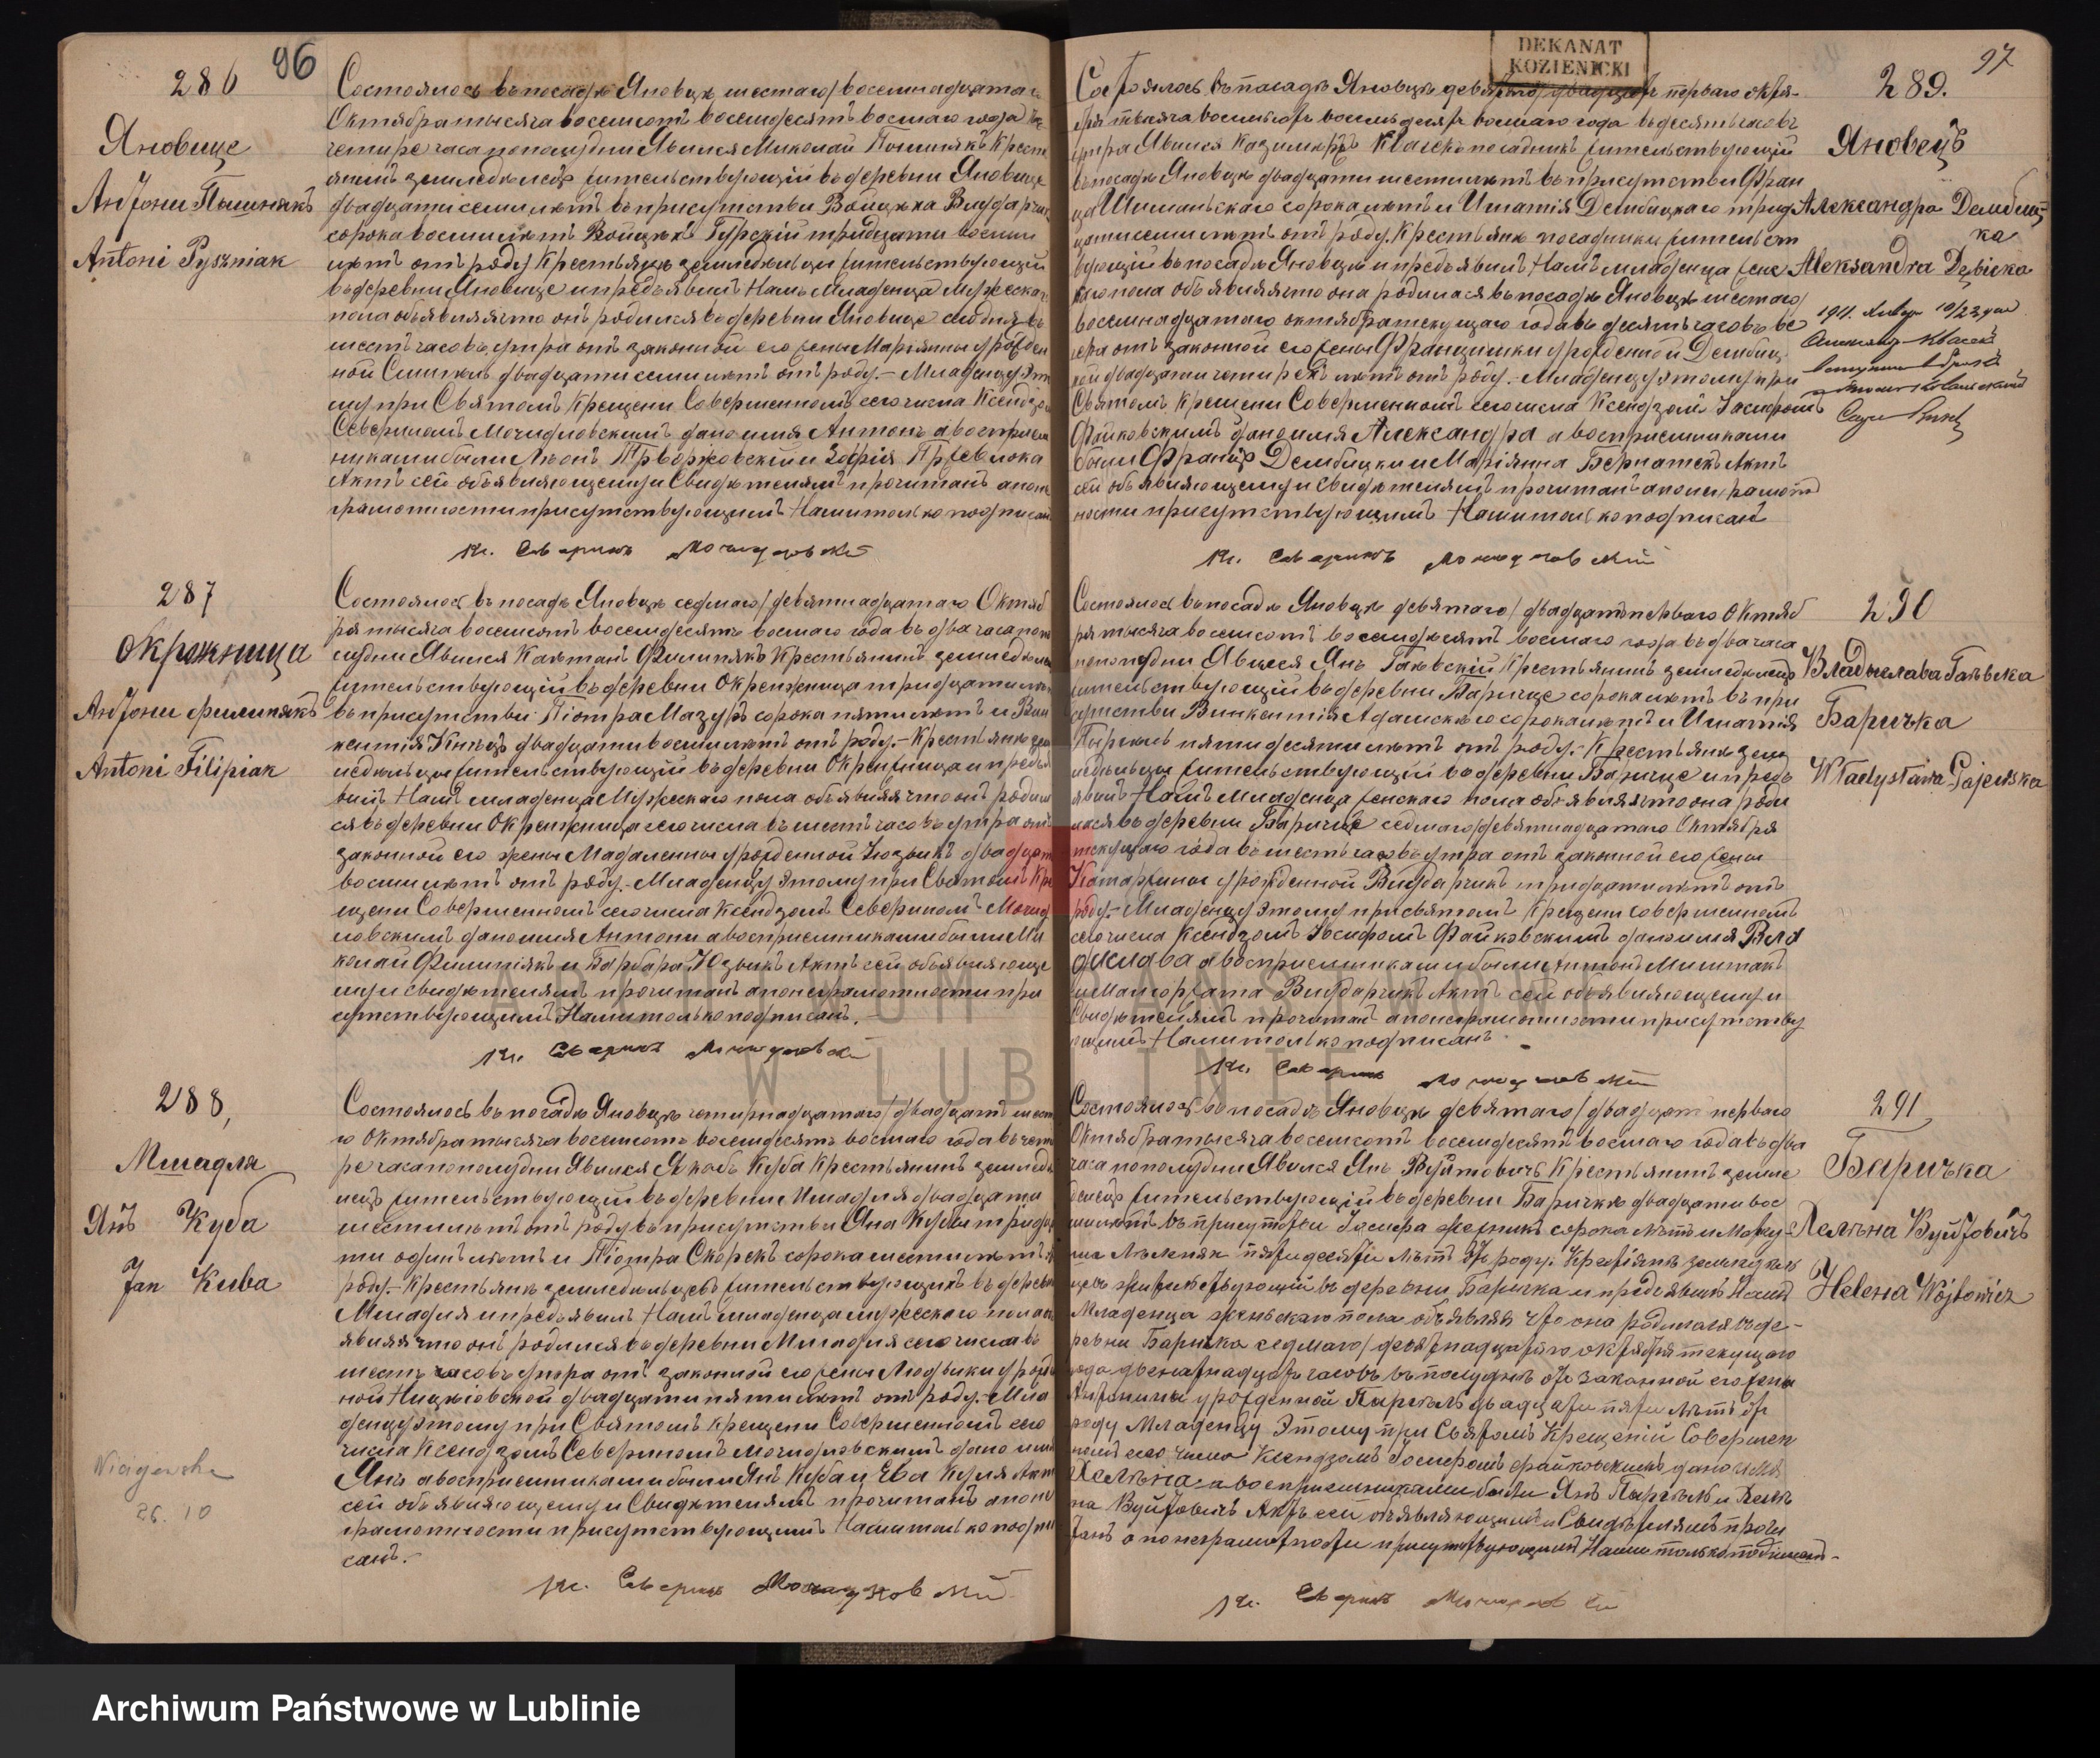 96
286
Яновице
Антони Пышнякъ
Antoni Pyszniak
Состоялось въ посадѣ Яновцѣ шестаго/восемнадцатаго
Октября тысяча восемсотъ восемдесятъ восмаго года въ
четыре часа пополудни Явился Миколай Пышнякъ Кресть
янинъ земледѣлецъ жительствующій въ деревни Яновице
двадцати семи лѣтъ въ присутствіи Войцѣха Влударчик
сорока восми лѣтъ Войцѣхъ Гурскій тридцати восми
лѣтъ отъ роду Крестьянъ земледѣльцы жительствующій
въ деревни Яновице и предъявилъ Намъ Младенца Мужескаго
пола объявляя что онъ родился въ деревни Яновице сегодня въ
шесть часовъ утра отъ законной его жены Маріянны урожден
ной двадцати семи лѣтъ отъ роду.- Младенцу Это
му при Святомъ Крещени Совершенномъ сего числа Ксендзомъ
Севериномъ Мочидловскимъ дано имя Антонъ а воспріем
никами были Леонъ и Зофія
Актъ сей объявляющему и Свидѣтелямъ прочитанъ а по не
грамотности присутствующимъ Нами только подписанъ
Кс. Северинъ Мочидловскій
287
Окронжница
Антони филипякъ
Antoni Filipiak
Состоялось въ посадѣ Яновцѣ седмаго/девятнадцатаго Октяб
ря тысяча восемсотъ восемдесятъ восмаго года въ два часа попо
лудни Явился Каэтанъ Филипякъ Крестьянинъ земледѣлецъ
жительствующій въ деревни Окренжница тридцати лѣтъ
въ присутствіи Піотра Мазуръ сорока пяти лѣтъ и Вин
кентія двадцати восми лѣтъ отъ роду.- Крестьянъ зем
ледѣльцы жительствующій въ деревни Окренжница и предъя
вилъ Намъ младенца Мужескаго пола объявляя что онъ родил
ся въ деревни Окренжница сего числа въ шесть часовъ утра отъ
законной его жены Магдалены урожденной Юзвикъ двадцати
восми лѣтъ отъ роду.- Младенцу Этому при Святомъ Кре
щени Совершенномъ сего числа Ксендзомъ Севериномъ Мочид
ловскимъ дано имя Антони а воспріемниками были Ми
колай Филипякъ и Барбара Юзвикъ Актъ сей объявляюще
му и свидѣтелямъ прочитанъ а по неграмотности при
сутствующимъ Нами только подписанъ.-
Кс. Северинъ Мочидловскій
288,
Мшадля
Янъ Куба
Jan Kuba
Состоялось въ посадѣ Яновцѣ четырнадцатаго/двадцать шеста
го Октября тысяча восемсотъ восемдесятъ восмаго года въ четы
ре часа пополудни Явился Якобъ Куба Крестьянинъ земледѣ
лецъ жительствующій въ деревни Мшадля двадцати
шести лѣтъ отъ роду въ присутствіи Яна Кубы тридца
ти одинъ лѣтъ и Піотра Скорекъ сорока шести лѣтъ отъ
роду.- Крестьянъ земледѣльцевъ жительствующихъ въ деревни
Мшадля и предъявилъ Намъ младенца мужескаго пола объ
являя что онъ родился въ деревни Мшадля сего числа въ
шесть часовъ утра отъ законной его жены Людвики урожден
ной двадцати пяти лѣтъ отъ роду.- Мла
денцу этому при Святомъ Крещени Совершенномъ сего
числа Ксендзомъ Севериномъ Мочидловскимъ дано имя
Янъ а воспріемниками были Янъ Куба и Ева Актъ
сей объявляющему и Свидѣтелямъ прочитанъ а по не
грамотности присутствующимъ Нами только подпи
санъ.-
26. 10
Кс. Северинъ Мочидловскій
DEKANAT
KOZIENICKI
97
289.
Яновецъ
Александра Дембиц
ка
Aleksandra Dębicka
Состоялось въ посадѣ Яновцѣ девятаго/двадцать перваго октя-
бря тысяча восемсотъ восемьдесятъ восмаго года въ десять часовъ
утра Явился Казимиръ Квасекъ посадникъ жительствующій
въ посадѣ Яновцѣ двадцати шести лѣтъ въ присутствіи Фран
ца Шиманьскаго сорока лѣтъ и Игнатія Дембицкаго трид
цати семи лѣтъ отъ роду. Крестьянъ посадники жительст
вующій въ посадѣ Яновцѣ и предъявилъ Намъ младенца женс
каго пола объявляя что она родилася въ посадѣ Яновцѣ шестаго/
восемнадцатаго октября текущаго года въ десять часовъ ве
чера отъ законной его жены Францишки урожденной Дембиц
кой двадцати четырехъ лѣтъ отъ роду.- Младенцу этому при
Святомъ Крещени Совершенномъ сего числа Ксендзомъ Іосифомъ
Файковскимъ дано имя Александра а воспріемниками
были Францъ Дембицки и Маріянна Бернатекъ Актъ
сей объявляющему и свидѣтелямъ прочитанъ а по неграмот
ности присутствующимъ Нами только подписанъ
1911. Января 10/23 дня
Кс. Северинъ Мочидловскій
290
Владыслава Гаевска
Баричка
Władysława Gajewska
Состоялось въ посадѣ Яновцѣ девятаго/двадцать перваго Октяб
ря тысяча восемсотъ восемдесятъ восмаго года въ два часа
пополудни Явился Янъ Гаевскій Крестьянинъ земледѣлецъ
жительствующій въ деревни Баричце сорока лѣтъ въ при
сутствіи Винкентія Адамскаго сорока лѣтъ и Игнатія
пятидесяти лѣтъ отъ роду.- Крестьянъ зем
ледѣльцы жительствующій въ деревни Баричце и предъ
явилъ Намъ Младенца женскаго пола объявляя что она роди
лася въ деревни Баричце седмаго/девятнадцатаго Октября
текущаго года въ шесть часовъ утра отъ законной его жены
Катаржины урожденной Влударчикъ тридцати лѣтъ отъ
роду.- Младенцу Этому при святомъ Крещени совершенномъ
сего числа Ксендзомъ Іосифомъ Файковскимъ дано имя Влa
дислава а воспріемниками были Антонъ
и Малгоржата Влударчикъ Актъ сей объявляющему и
Свидѣтелямъ прочитанъ а по неграмотности присутству
ющимъ Нами только подписанъ
Кс. Северинъ Мочидловскій
291
Баричка
Хелѣна Вуйтовичъ
Helena Wójtowicz
Состоялось въ посадѣ Яновцѣ девятаго/двадцать перваго
Октября тысяча восемсотъ восемдесятъ восмаго года въ два
часа пополудни Явился Янъ Вуйтовичъ Крестьянинъ земле
дѣлецъ жительствующій въ деревни Баричкѣ двадцати вос
ми лѣтъ въ присутствіи Іосифа сорока лѣтъ и
пятидесяти лѣтъ отъ роду. Крестьянъ земледѣль
цевъ жительствующій въ деревни Баричка и предъявилъ Намъ
Младенца женьскаго пола объявляя что она родилася въ де-
ревни Баричка седмаго/девятнадцатаго октября текущаго
года двенатнадцать часовъ въ полуднѣ отъ законной его жены
Антонины урожденной двадцати пяти лѣтъ отъ
роду Младенцу Этому при Святомъ Крещеній Совершен
номъ сего числа Ксендзомъ Іосифомъ файковскимъ дано имя
Хелѣна а воспріемниками были Янъ и Хелѣ
на Вуйтовичъ Актъ сей объявляющимъ и Свидѣтелямъ прочи
танъ а по неграмотности присутствующимъ Нами только подписанъ-
Кс. Северинъ Мочидловскій
W LUBLINIE
Archiwum Państwowe w Lublinie